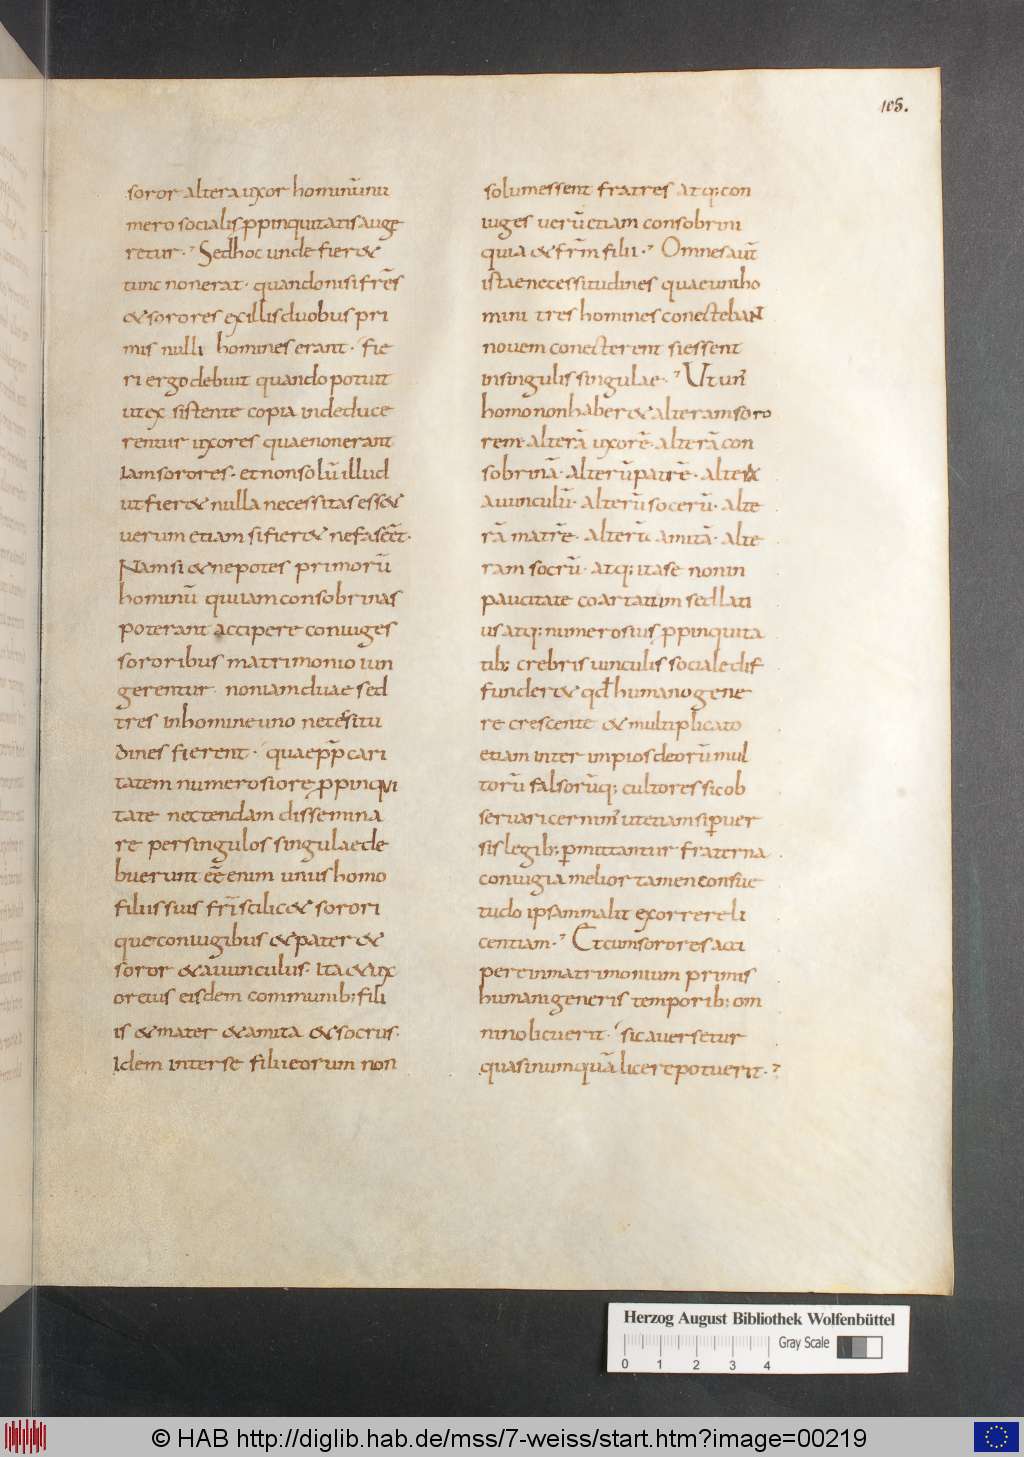 105.
soror altera uxor hominũ nu
mero socialis ꝓpinquitatis auge
retur. Sed hoc unde fier&
tunc non erat. quando nisi frẽs
& sorores ex illis duobus pri
mis nulli homines erant. fie
ri ergo debuit quando potuit
ut exsistente copia inde duce
rentur uxores quae non erant
iam sorores. et non solũ illud
ut fier& nulla necessitas ess&
uerum etiam si fier& nefas eẽt.
Nam si & nepotes primorũ
hominũ qui iam consobrinas
poterant accipere coniuges
sororibus matrimonio iun
gerentur. non iam duae sed
tres in homine uno necessitu
dines fierent. quae ꝓp̃ cari
tatem numerosiore ꝓpinqui
tate nectendam dissemina
re per singulos singulae de
buerunt. eẽ enim unus homo
filiis suis fr̃i scilic& sorori
que coniugibus & pater &
soror & auunculus. Ita & ux
or eius eisdem communib; fili
is & mater & amita & socrus.
Idem inter se filii eorum non
solum essent fratres atq; con
iuges uerũ etiam consobrini
quia & fr̃m filii. Omnes aut̃
istae necessitudines quae uni ho
mini tres homines conecteban̄
nouem conecterent si essent
in singulis singulae. Ut un̄
homo non haber& alteram soro
rem. alterã uxorẽ. alterã con
sobrinã. alterũ patrẽ. alterũ
auunculũ. alterũ socerũ. alte
rã matrẽ. alterũ amitã. alte
ram socrũ. atq; ita se non in
paucitate coartatum sed lati
us atq; numerosius ꝓpinquita
tib; crebris uinculis sociale dif
funder& qđ humano gene
re crescente & multiplicato
etiam inter impios deorũ mul
torũ falsorũq; cultores sic ob
seruari cernim̃ ut etiam si ꝑuer
sis legib; ꝑmittantur fraterna
coniugia melior tamen consue
tudo ipsam malit exorrere li
centiam. Et cum sorores acci
pere in matrimonium primis
humani generis temporib; om
nino licuerit. sic auersetur
quasi numquã licere potuerit.
Herzog August Bibliothek Wolfenbüttel
Gray Scale
0 1 2 3 4
© HAB http://diglib.hab.de/mss/7-weiss/start.htm?image=00219